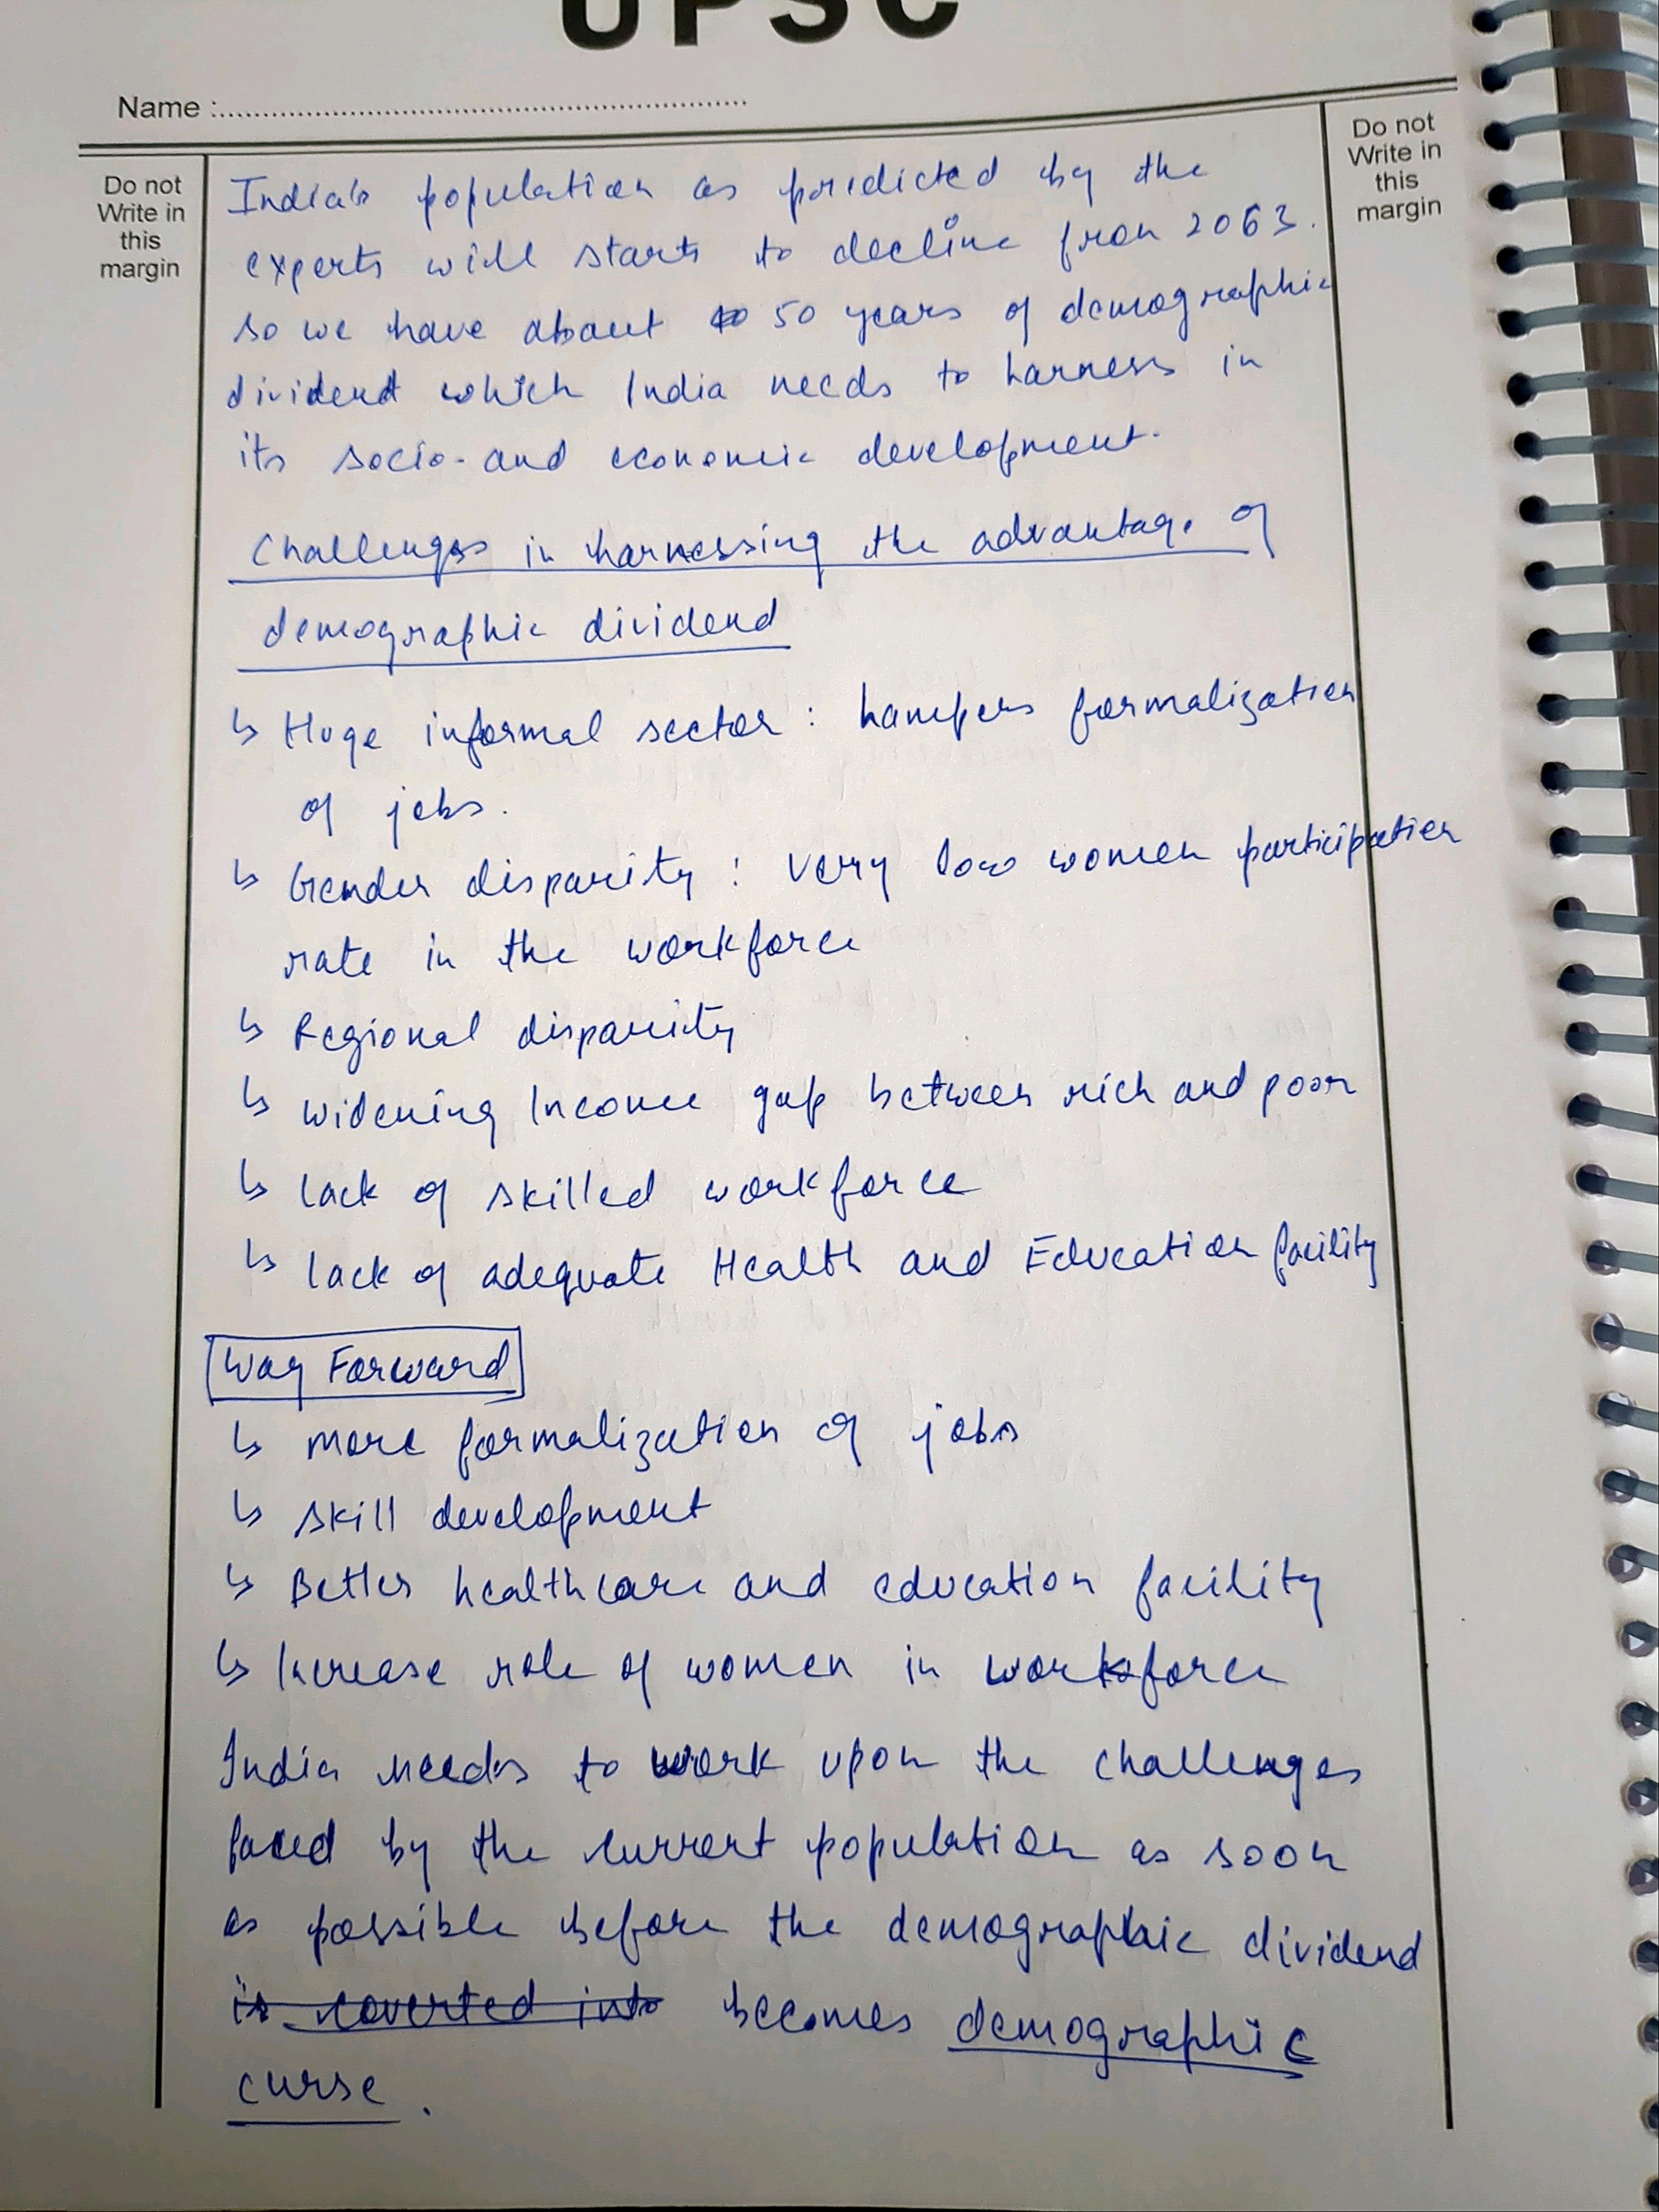 UPSC
Name :
Do not
Write in
this
margin
Do not
Write in
this
margin
India's population as predicted by the
experts will starts to decline from 2063.
so we have about 50 years of demographic
dividend which India needs to harness in
its socio-and economic development.
Challenges in harnessing the advantage of
demographic dividend
↳ Huge informal sector : hampers formalization
of jobs.
↳ Gender disparity : very low women participation
rate in the workforce
↳ Regional disparity
↳ widening Income gap between rich and poor
↳ lack of skilled workforce
↳ lack of adequate Health and Education facility
Way Forward
↳ more formalization of jobs
↳ skill development
↳ Better healthcare and education facility
↳ Increase role of women in workforce
India needs to work upon the challenges
faced by the current population as soon
as possible before the demographic dividend
is coverted into becomes demographic
curse.